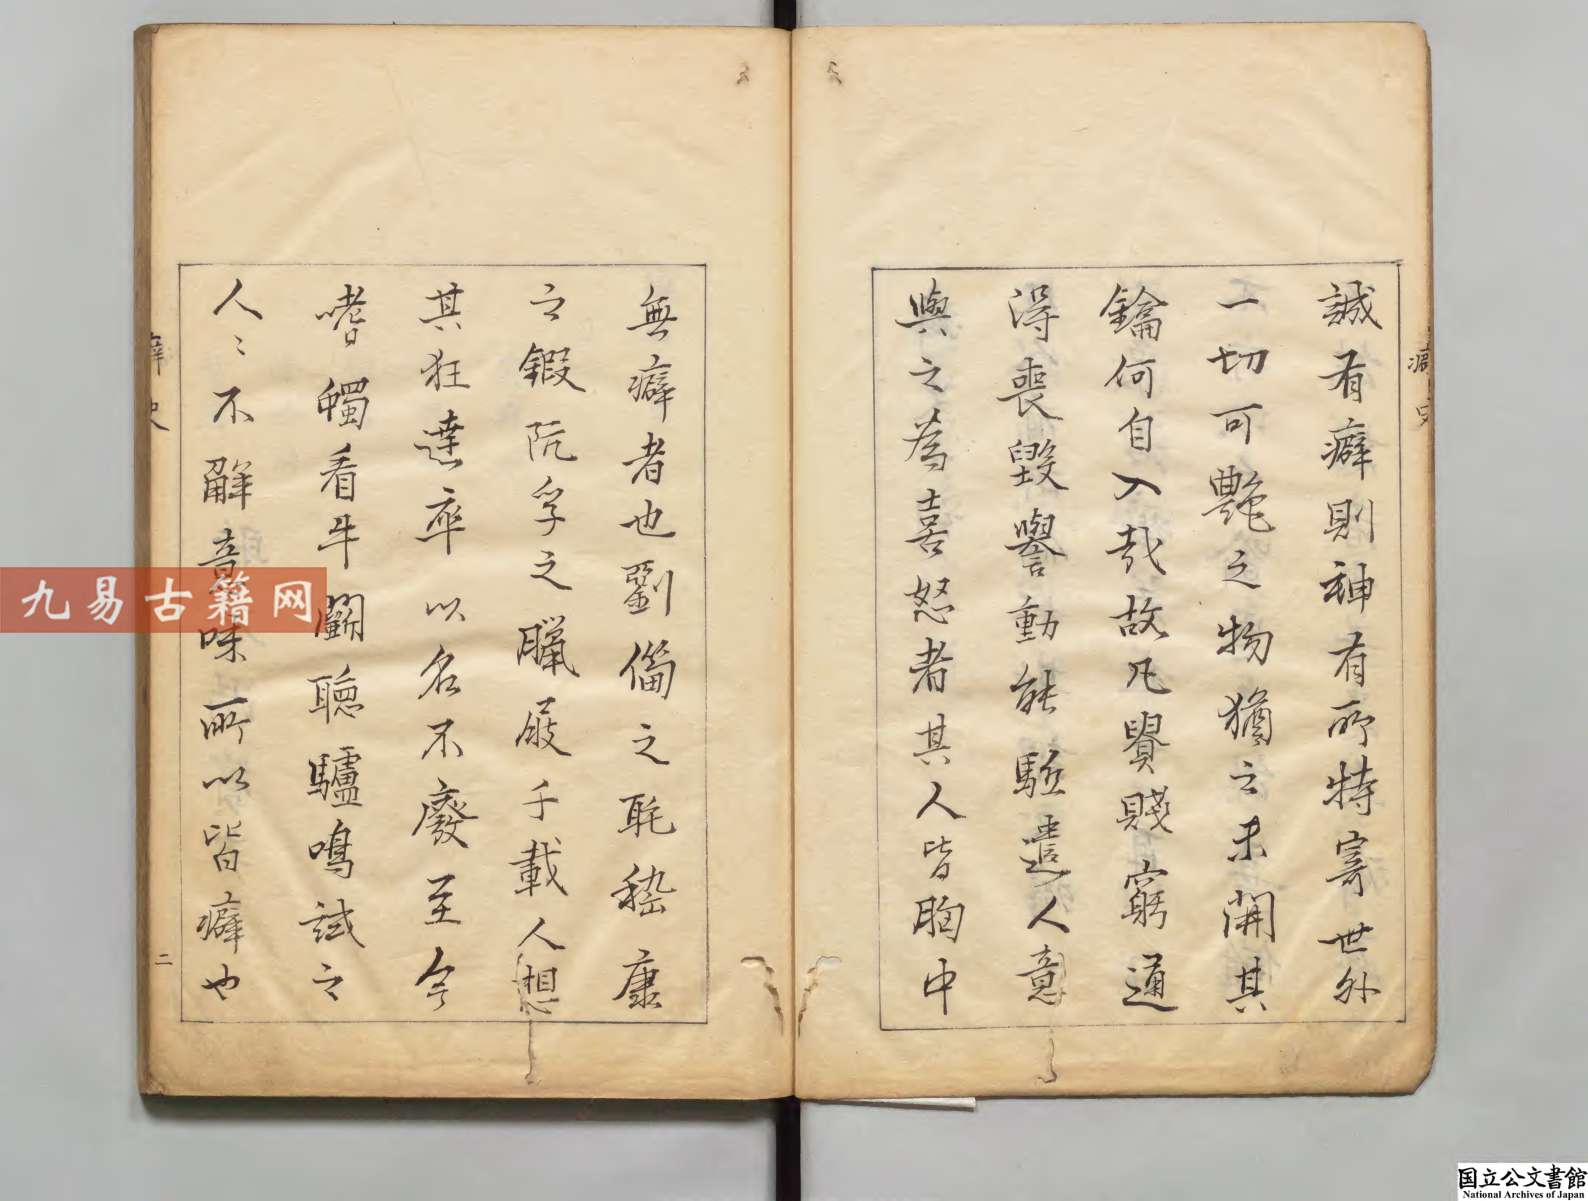 誠有癖則神有所特寄世外
一切可艷之物猶之未開其
鑰何自入哉故凡貴賤窮通
得喪毀譽動能驅遣人意
與之為喜怒者其人皆胸中
無癖者也劉僃之毦嵇康
之鍜阮孚之臘屐千載人想
其狂達率以名不廢至今
嗜蠋看牛鬭聽驢鳴試之
人〻不解意味所以皆癖也
癖史
二
九易古籍网
国立公文書館
National Archives of Japan